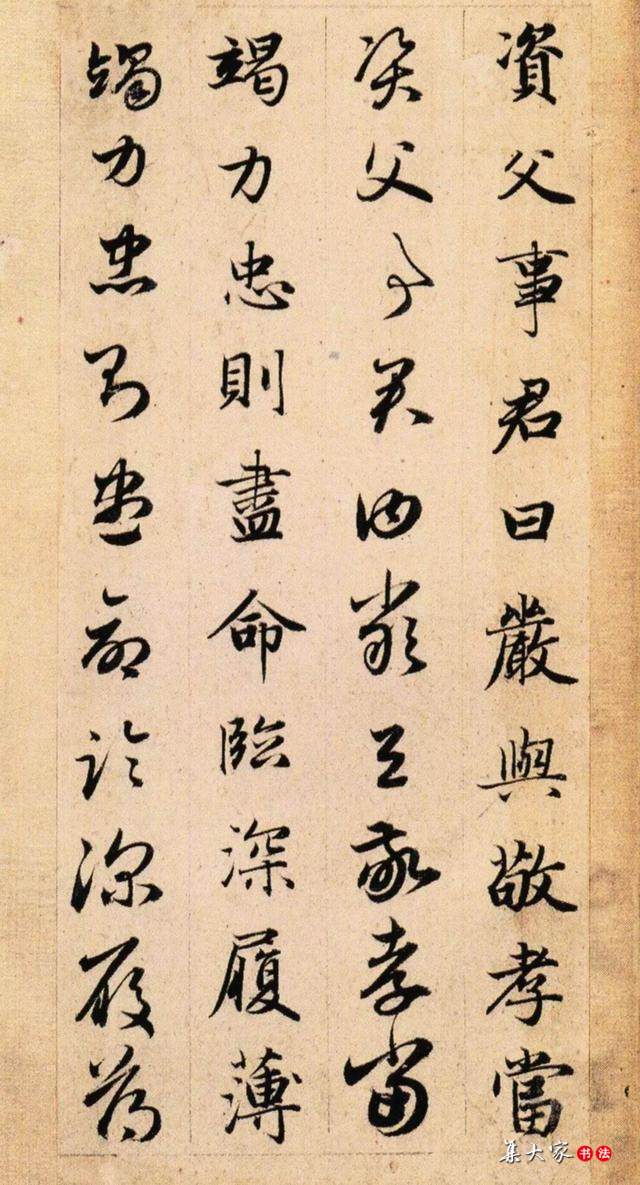 資父事君曰嚴與敬孝當
資父事君曰嚴與敬孝當
竭力忠則盡命臨深履薄
竭力忠則盡命臨深履薄
集大家书法